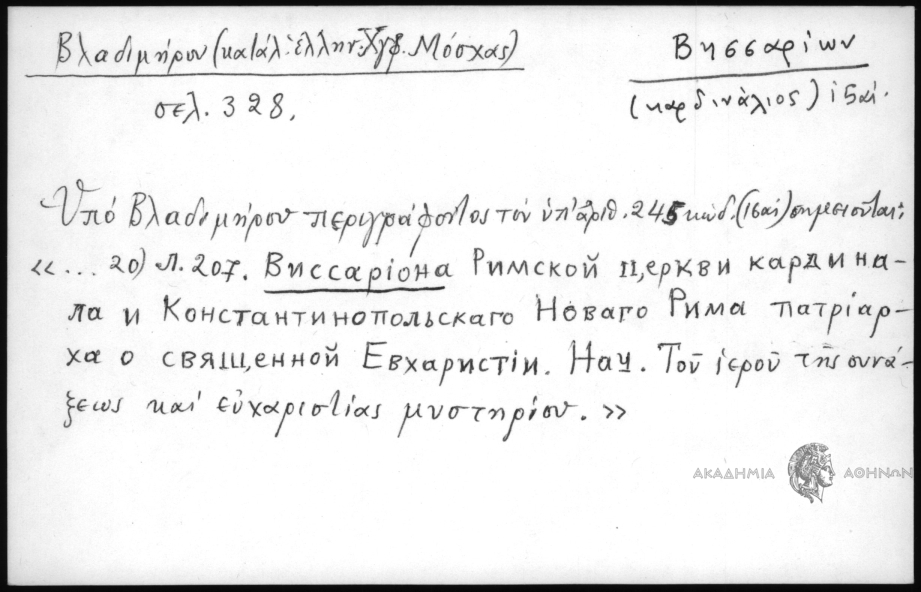 Βλαδιμήρου (κατάλ. ἑλλην. Χγφ. Μόσχας)
Βησσαρίων
σελ. 328,
(καρδινάλιος) ι5αι.
Ὑπό Βλαδιμήρου περιγράφοντος τόν ὑπ' ἀριθ. 245 κώδ. (16αι) σημειοῦται:
«... 20) Л. 207. Виссаріона Римской церкви кардина-
ла и Константинопольскаго Новаго Рима патріар-
ха о священной Евхаристіи. Нач. Τοῦ ἱεροῦ τῆς συνά-
ξεως καί εὐχαριστίας μυστηρίου.»
ΑΚΑΔΗΜΙΑ ΑΘΗΝΩΝ